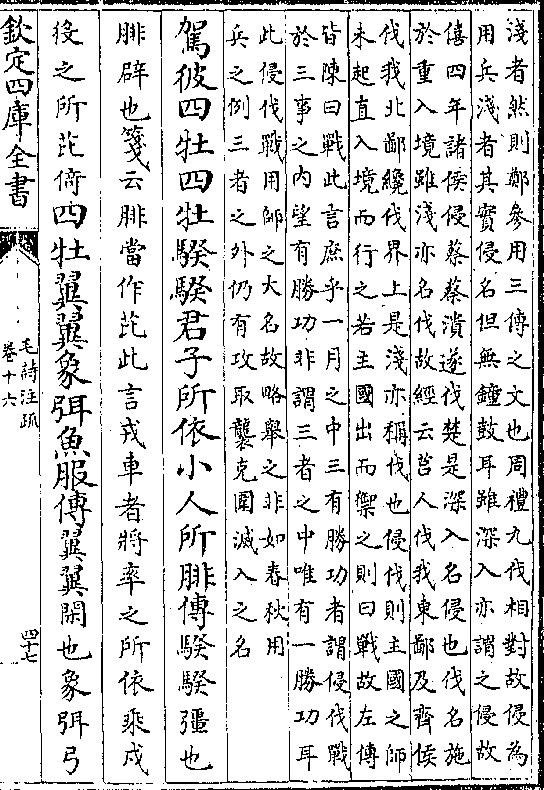 淺者然則鄭參用三傳之文也周禮九伐相對故侵為
用兵淺者其實侵名但無鐘鼓耳雖深入亦謂之侵故
僖四年諸侯侵蔡蔡潰遂伐楚是深入名侵也伐名施
於重入境雖淺亦名伐故經云莒人伐我東鄙及齊侯
伐我北鄙纔伐界上是淺亦稱伐也侵伐則主國之師
未起直入境而行之若主國出而禦之則曰戰故左傳
皆陳曰戰此言庶乎一月之中三有勝功者謂侵伐戰
於三事之內望有勝功非謂三者之中唯有一勝功耳
此侵伐戰用師之大名故略舉之非如春秋用
兵之例三者之外仍有攻取襲克圍滅入之名
駕彼四牡四牡騤騤君子所依小人所腓傳騤騤彊也
腓辟也箋云腓當作芘此言戎車者將率之所依乘戍
役之所芘倚四牡翼翼象弭魚服傳翼翼閑也象弭弓
欽定四庫全書
毛詩注疏
卷十六
四十七